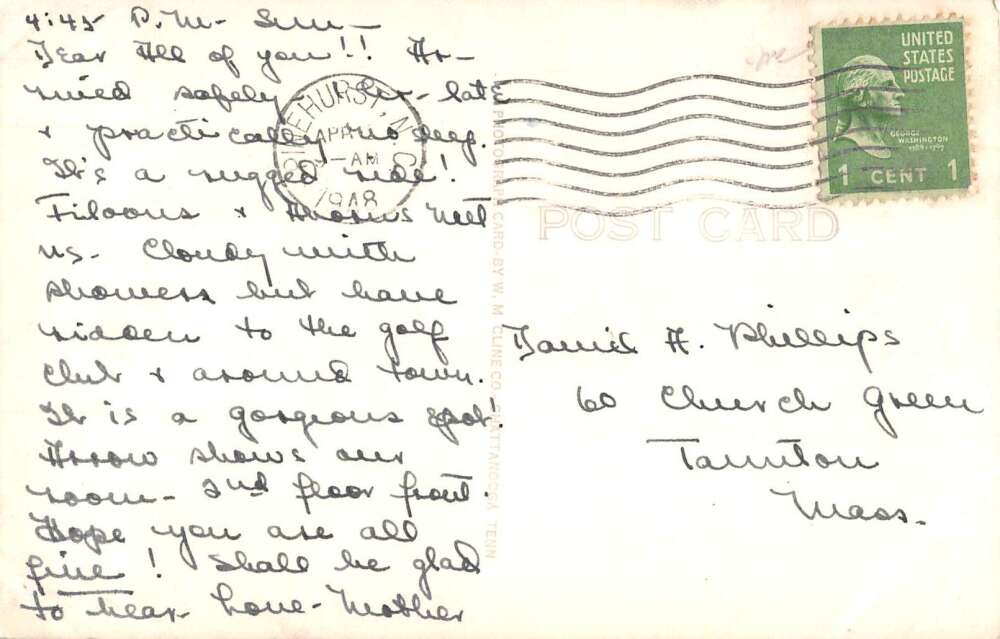 4:45 P.M- Sun-
Dear All of you!! Ar-
rived safely hr- late
& practically no dep.
It's a rugged ride!
Filoons & Thorns met
us- Cloudy with
showers but have
ridden to the golf
club & around town.
It is a gorgeous spot!
Arrow shows our
room- 2nd floor front.
Hope you are all
fine! Shall be glad
to hear- Love- Mother
PINEHURST, N.C.
APR
-AM
1948
UNITED
STATES
POSTAGE
GEORGE
WASHINGTON
1789-1797
1 CENT 1
POST CARD
PHOTOGRAPHIC CARD-BY W. M. CLINE CO., CHATTANOOGA, TENN
David A. Phillips
60 Church Green
Taunton
Mass.